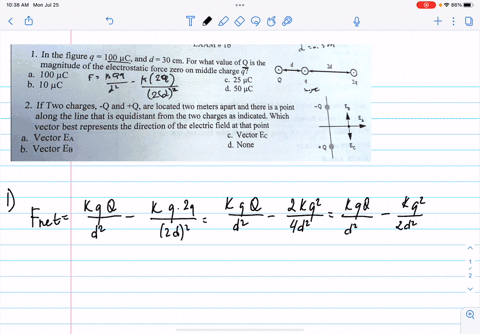 10:38 AM Mon Jul 25
86%
1. In the figure q = 100 μC, and d = 30 cm. For what value of Q is the
magnitude of the electrostatic force zero on middle charge q?
a. 100 μC
b. 10 μC
c. 25 μC
d. 50 μC
d
2d
Q
q
2q
2. If Two charges, -Q and +Q, are located two meters apart and there is a point
along the line that is equidistant from the two charges as indicated. Which
vector best represents the direction of the electric field at that point
a. Vector EA
b. Vector EB
c. Vector EC
d. None
-Q
+Q
EC
1) Fnet = KqQ/d² - Kq·2q/(2d)² = KqQ/d² - 2Kq²/4d² = KqQ/d² - Kq²/2d²
1
2